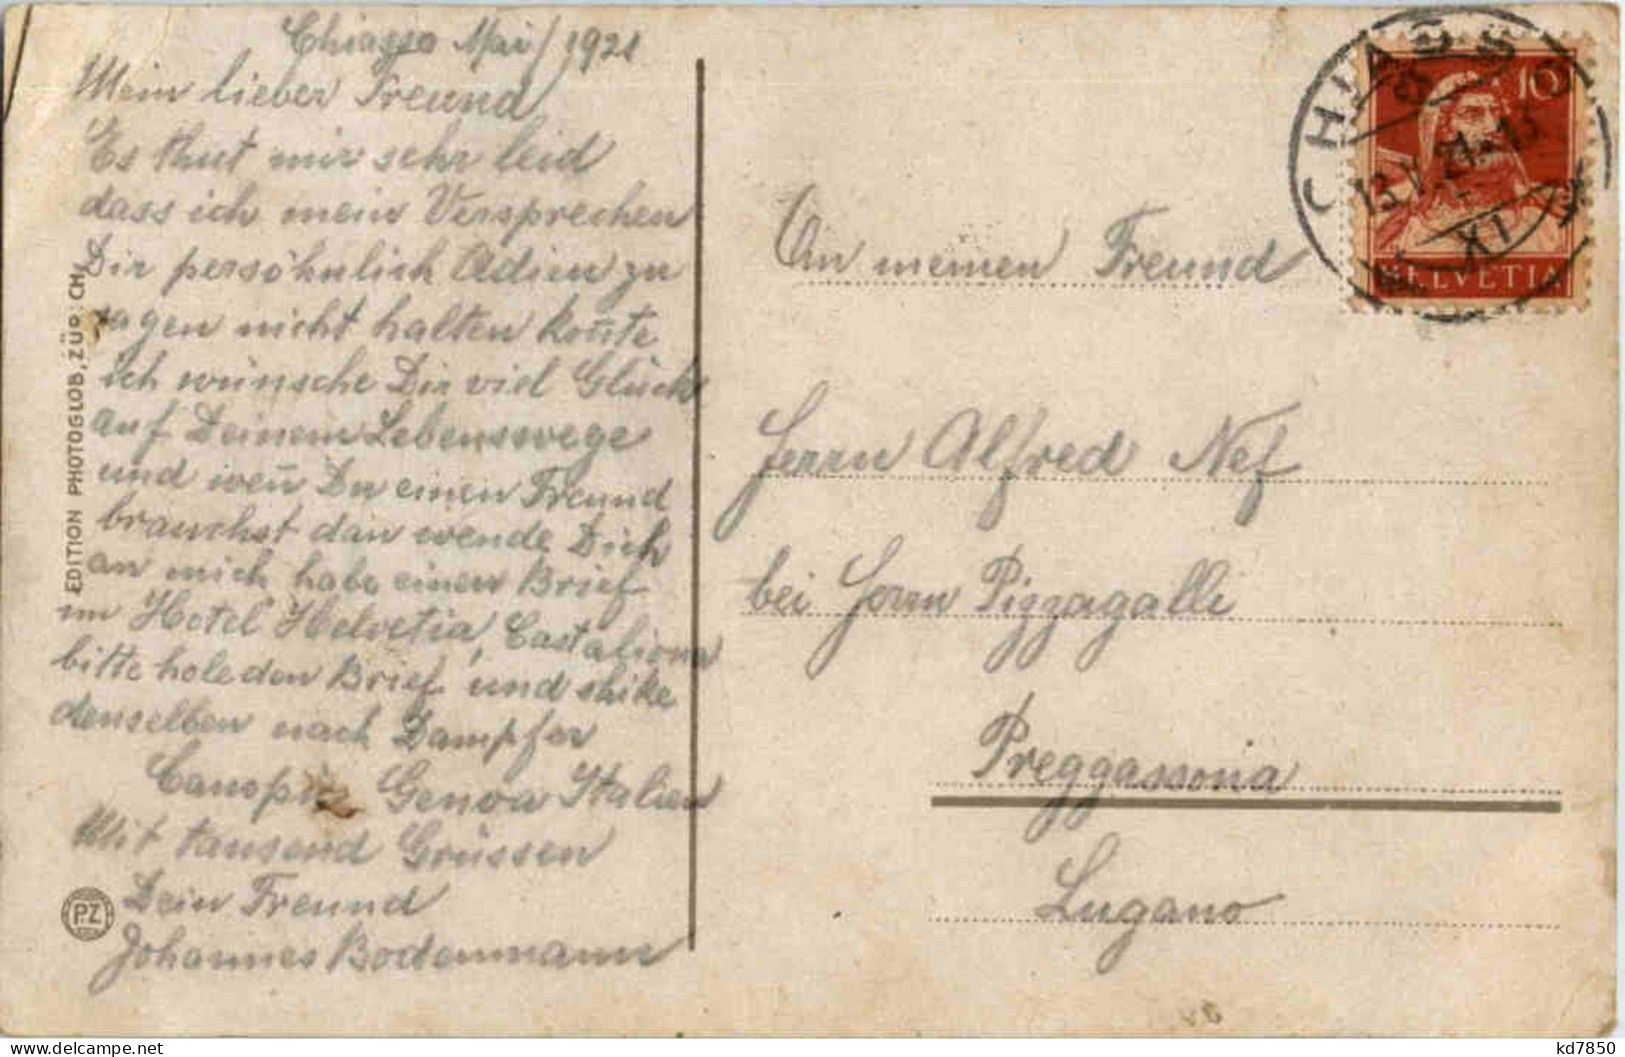 Chiasso Mai/1921
Mein lieber Freund
Es thut mir sehr leid
dass ich mein Versprechen
Dir persöhnlich Adien zu
sagen nicht halten koñte
ich wünsche Dir viel Glück
auf Deinem Lebenswege
und weñ Du einen Freund
brauchst dan wende Dich
an mich habe einen Brief
im Hotel Helvetia, Castaliona
bitte hole den Brief und shike
denselben nach Dampfer
Genova Italien
Mit tausend Grüssen
Dein Freund
Johannes Bodenmann
EDITION PHOTOGLOB, ZÜRICH
PZ
An meinen Freund
Herrn Alfred Nef
bei Herrn Pizzagalli
Preggassona
Lugano
CHIASSO
13.V.21.-13
XI
10
HELVETIA
kd7850